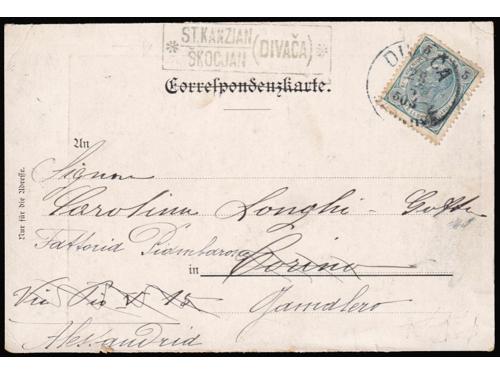 ST. KANZIAN
ŠKOCJAN (DIVAČA)
5 5
DIVAČA
Correspondenzkarte.
An
Nur für die Adresse.
Signora
Carolina Longhi - Gotta
Fattoria Piombarosa
in Torino
Via Pio V 15 Gamalero
Alessandria